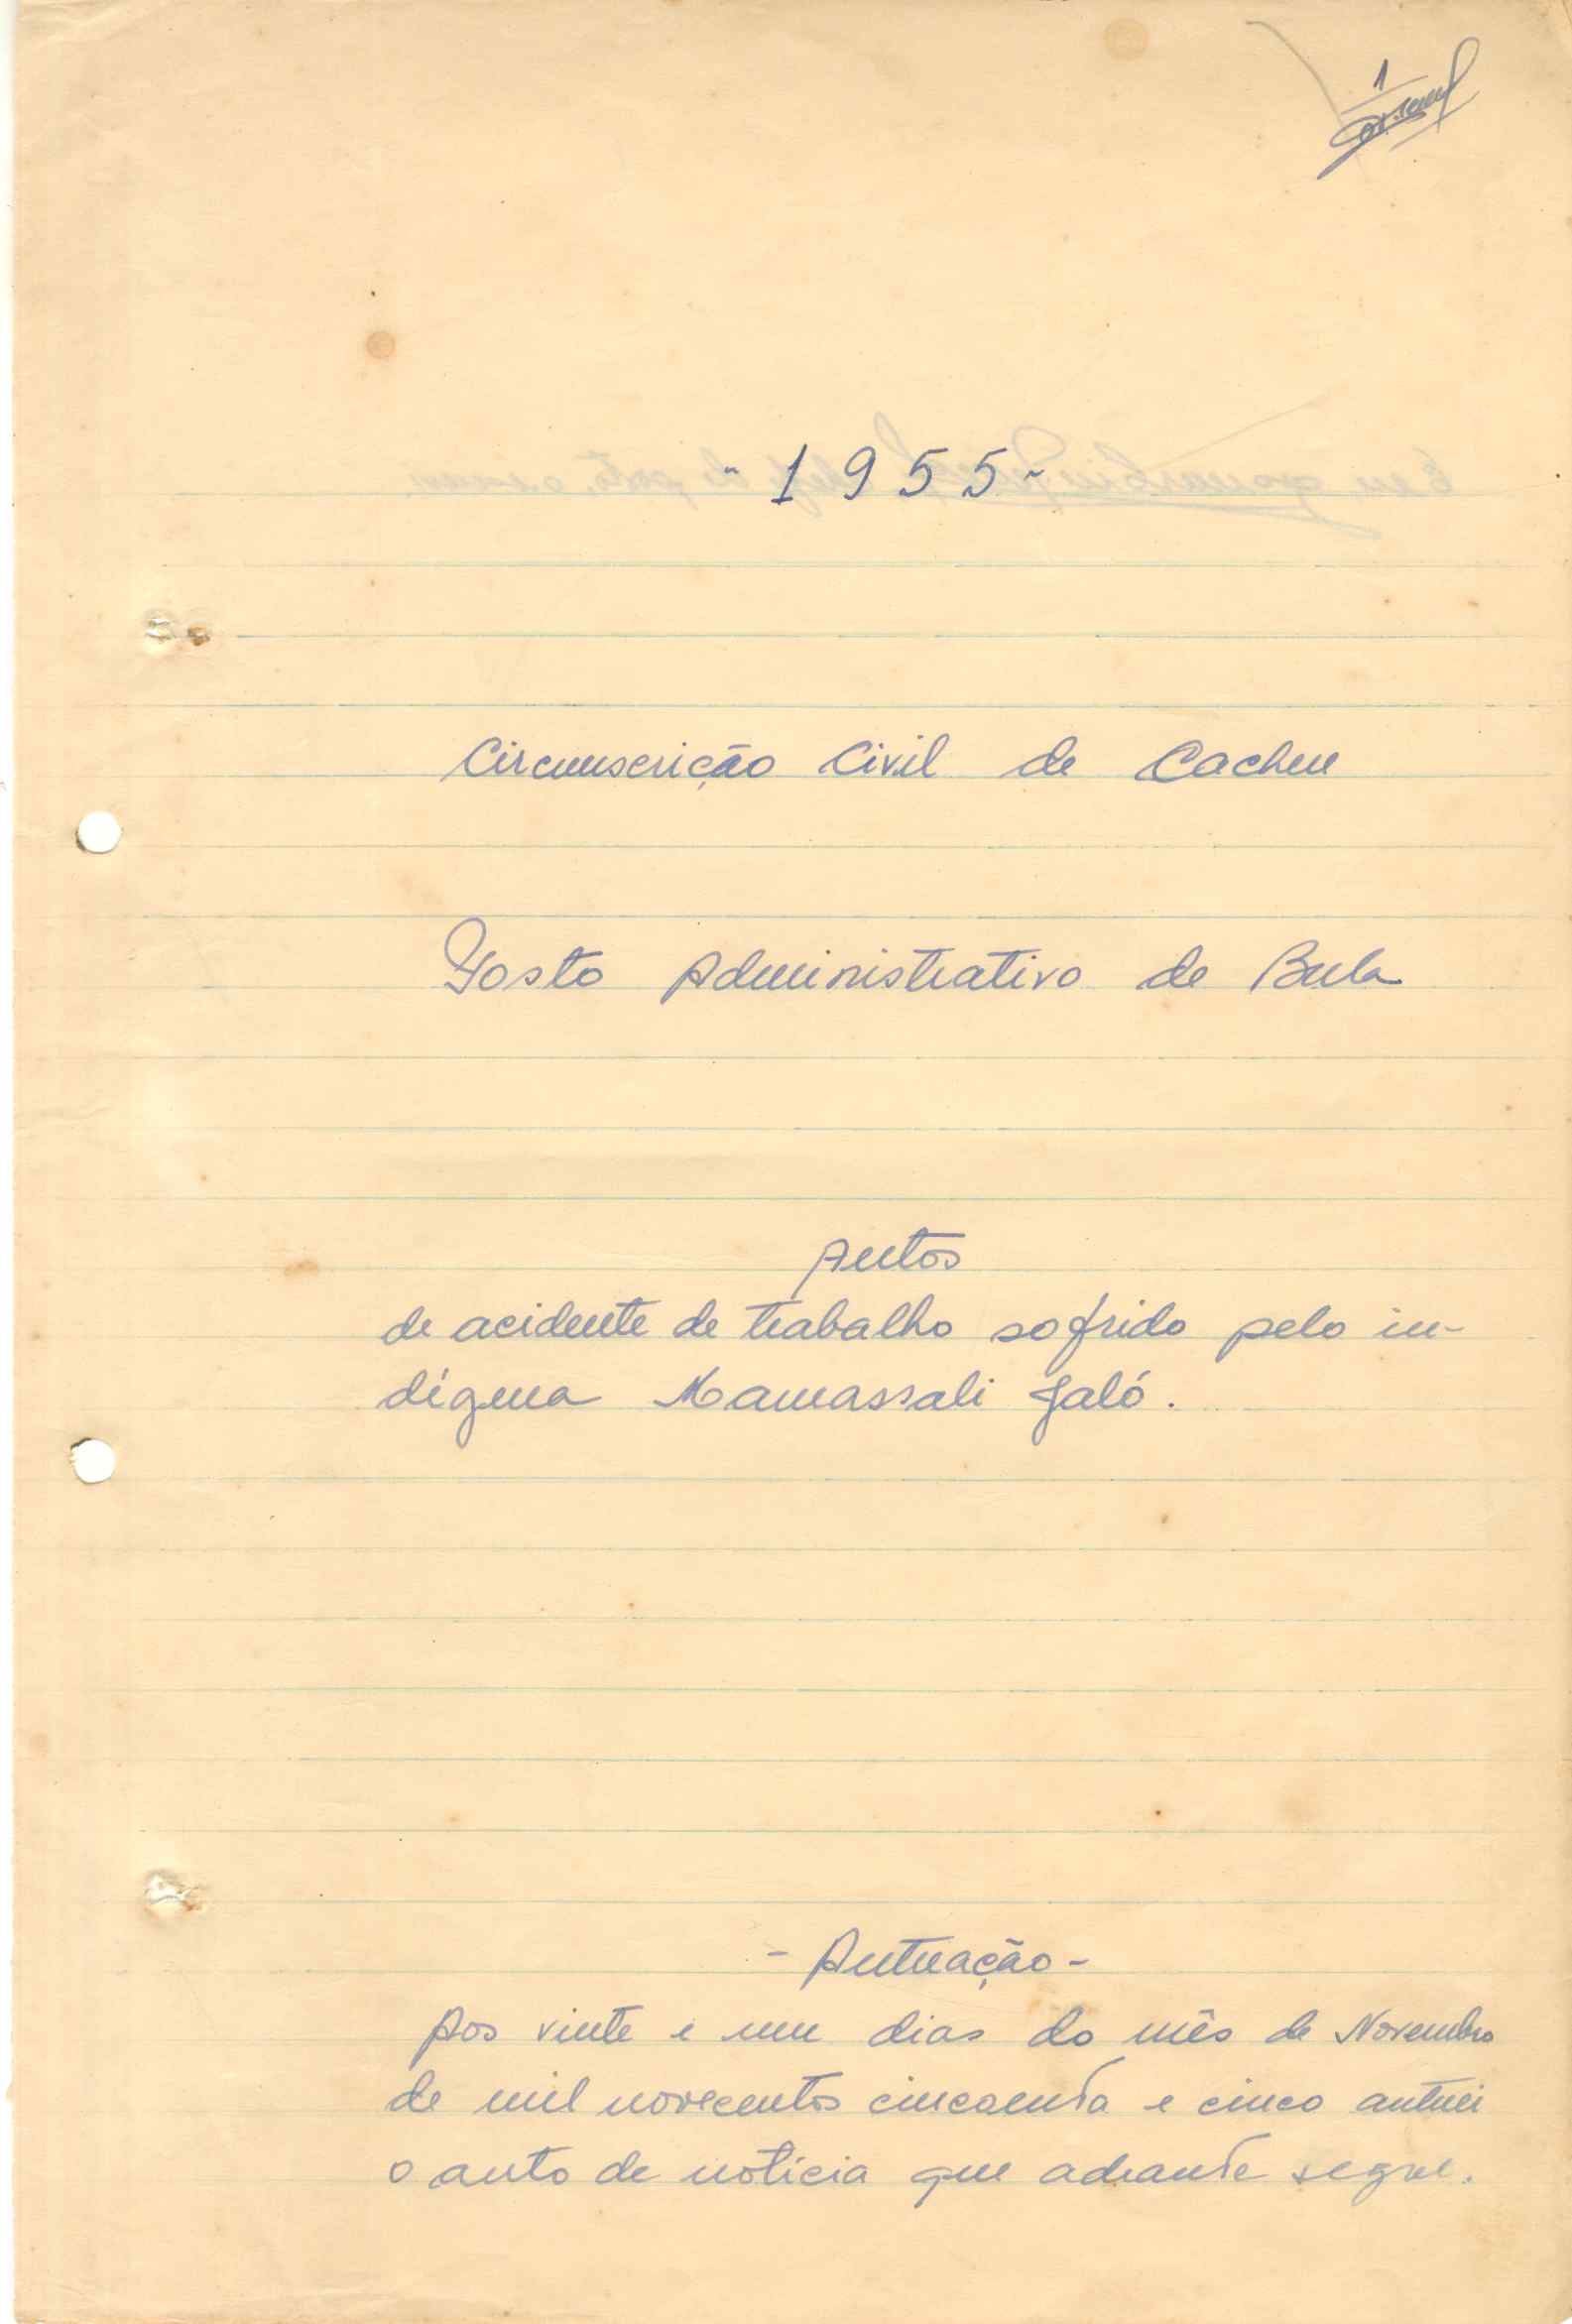 1
- 1955 -
Circunscrição Civil de Cacheu
Posto Administrativo de Bula
Autos
de acidente de trabalho sofrido pelo in-
dígena Mamassali Jaló.
- Autuação -
Aos vinte e um dias do mês de Novembro
de mil novecentos cincoenta e cinco autuei
o auto de notícia que adeante segue.